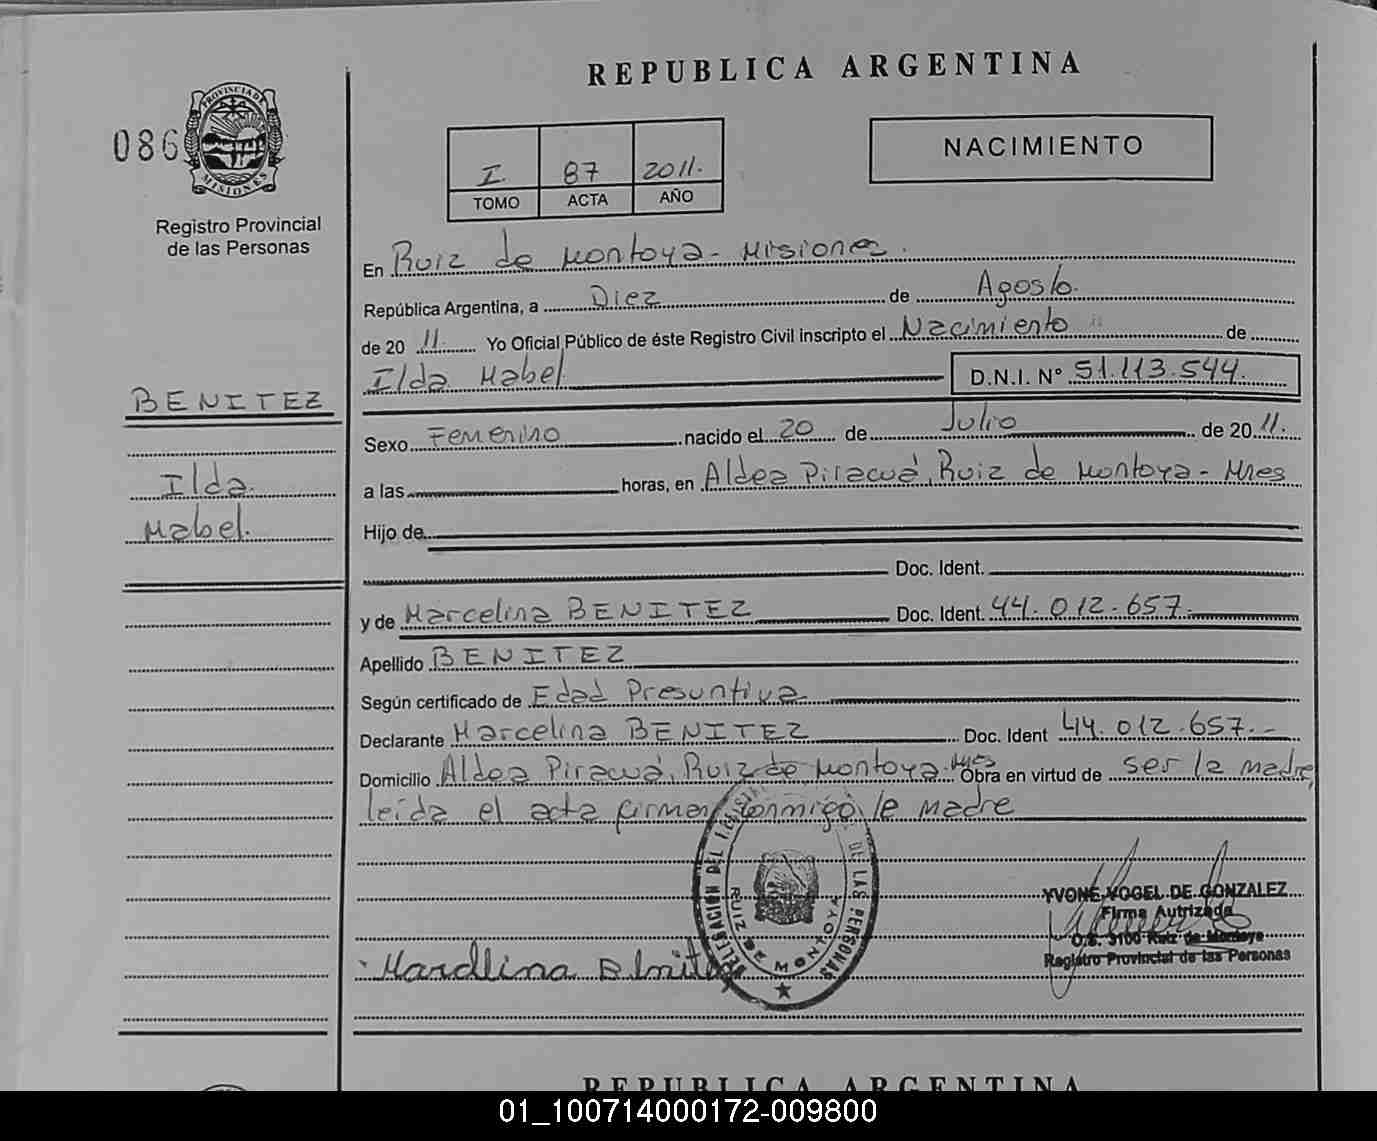 REPUBLICA ARGENTINA
086
PROVINCIA DE MISIONES
Registro Provincial
de las Personas
I. 87 2011.
TOMO ACTA AÑO
NACIMIENTO
En Ruiz de Montoya - Misiones.
República Argentina, a Diez de Agosto.
de 20 11. Yo Oficial Público de éste Registro Civil inscripto el Nacimiento de
Ilda Mabel D.N.I. N° 51.113.544.
BENITEZ
Ilda
Mabel.
Sexo Femenino nacido el 20 de Julio de 20 11.
a las horas, en Aldea Piracuá, Ruiz de Montoya - Mnes
Hijo de
Doc. Ident.
y de Marcelina BENITEZ Doc. Ident. 44.012.657.
Apellido BENITEZ
Según certificado de Edad Presuntiva
Declarante Marcelina BENITEZ Doc. Ident 44.012.657.-
Domicilio Aldea Piracuá, Ruiz de Montoya Mnes Obra en virtud de ser la madre,
leída el acta firma conmigo la madre
DELEGACIÓN DEL REGISTRO DE LAS PERSONAS
RUIZ DE MONTOYA
YVONE VOGEL DE GONZALEZ
Firma Autrizada
O.S. 3100 Ruiz de Montoya
Registro Provincial de las Personas
Marcelina Benitez
REPUBLICA ARGENTINA
01_100714000172-009800